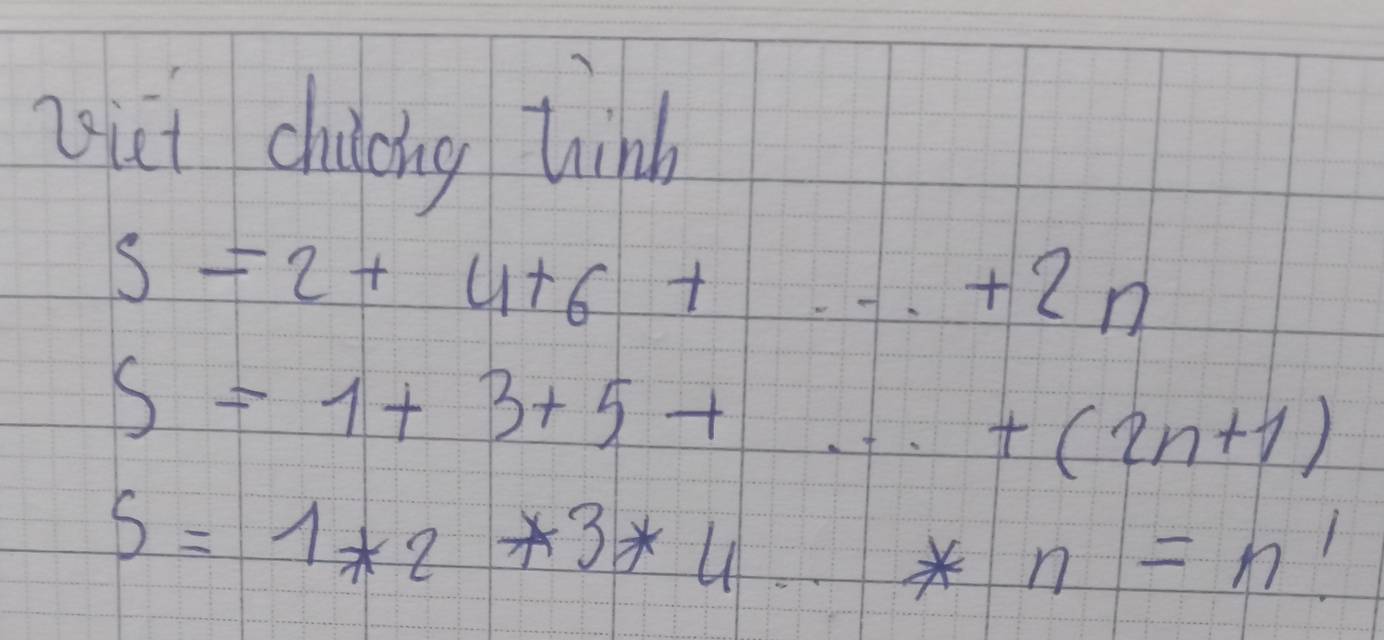 Viết chương trình
S = 2 + 4 + 6 + .... + 2n
S = 1 + 3 + 5 + .... + (2n+1)
S = 1 * 2 * 3 * 4 ... * n = n!